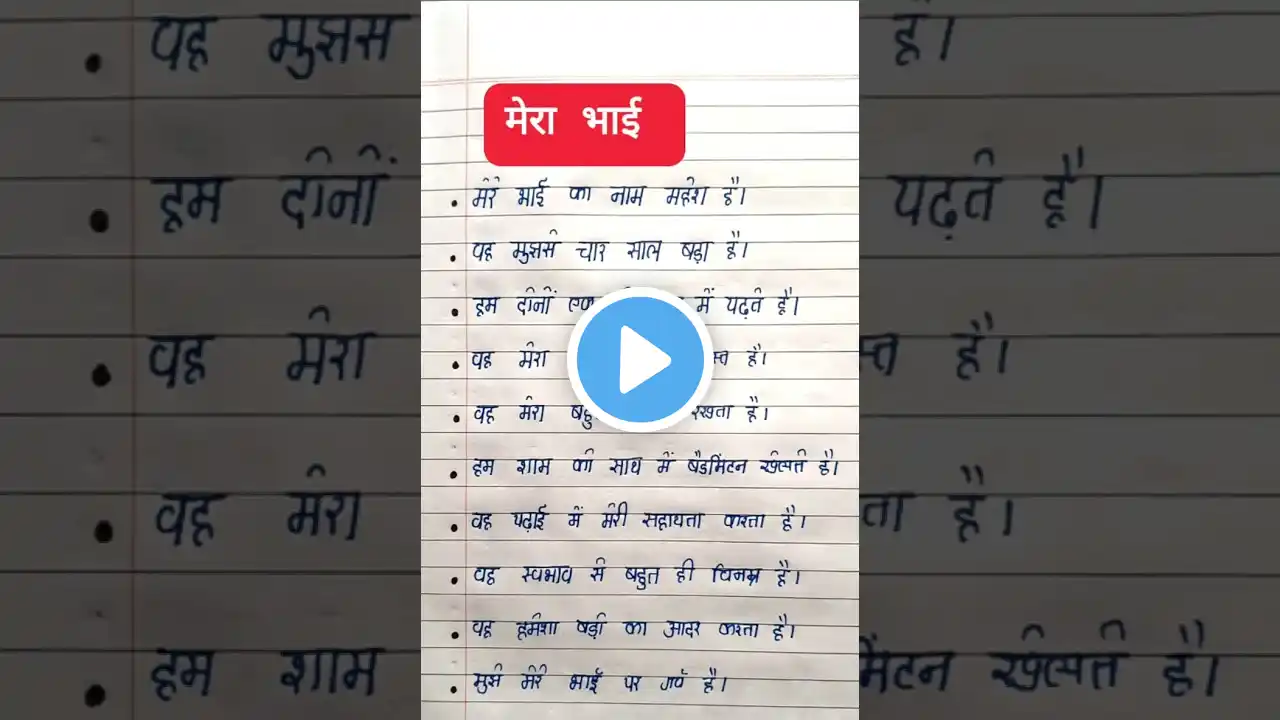 मेरा भाई
• मेरे भाई का नाम महेश है।
• वह मुझसे चार साल बड़ा है।
• हम दोनों एक में पढ़ते है।
• वह मेरा है।
• वह मेरा रखता है।
• हम शाम को साथ में बैडमिंटन खेलते है।
• वह पढ़ाई में मेरी सहायता करता है।
• वह स्वभाव से बहुत ही विनम्र है।
• वह हमेशा बड़ों का आदर करता है।
• मुझे मेरे भाई पर गर्व है।